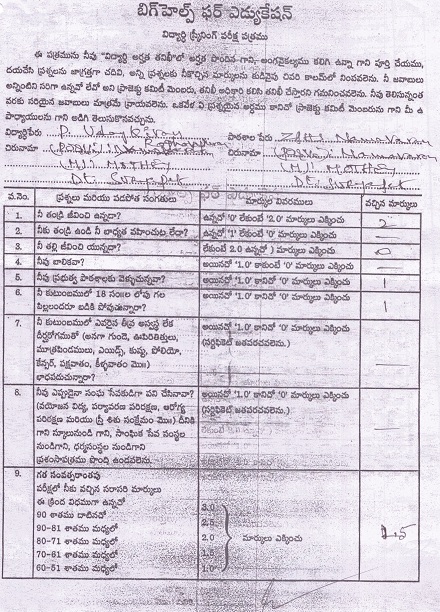 బిగ్‌హెల్ప్ ఫర్ ఎడ్యుకేషన్
విద్యార్థి స్క్రీనింగ్ పరీక్ష పత్రము
ఈ పత్రమును నీవు "విద్యార్థి అర్హత తనిఖీ"లో అర్హత పొందిన గాని, అంగవైకల్యము కలిగి ఉన్నా గాని పూర్తి చేయుము,
దయచేసి ప్రశ్నలను జాగ్రత్తగా చదివి, అన్ని ప్రశ్నలకు నీకొచ్చిన మార్కులను కుడివైపు చివరి కాలమ్‌లో నింపవలెను. నీ జవాబులు
అన్నింటిని సరిగా ఉన్నావో లేదో అని ప్రాజెక్టు కమిటీ మెంబరు, తనిఖీ అధికారి కలిసి తనిఖీ చేస్తారని గమనించవలెను. నీవు తెలిసినంత
వరకు సరియైన జవాబులు మాత్రమే వ్రాయవలెను. ఒకవేళ ఏ ప్రశ్నయైన అర్థము కానిచో ప్రాజెక్టు కమిటీ మెంబరును గాని మీ ఉ
పాధ్యాయులను గాని అడిగి తెలుసుకొనవచ్చును.
విద్యార్థిపేరు P. Uday Kiran పాఠశాల పేరు ZPHS
చిరునామా చిరునామా
Dt. Suryapet Dt. Suryapet
వ.నెం. ప్రశ్నలు మరియు పడహోత సంగతులు మార్కుల వివరములు వచ్చిన మార్కులు
1. నీ తండ్రి జీవించి ఉన్నాడా? ఉన్నచో '0' లేకుంటే '2.0' మార్కులు ఎక్కించు 2
2. నీకు తండ్రి ఉండి నీ బాధ్యత వహించుట లేదా? ఉన్నచో '1' లేకుంటే '0' మార్కులు ఎక్కించు —
3. నీ తల్లి జీవించి యున్నదా? లేకుంటే 2.0 ఉన్నచో ) మార్కులు ఎక్కించు 0
4. నీవు బాలికవా? అయినచో '1.0' కాకుంటే '0' మార్కులు ఎక్కించు —
5. నీవు ప్రభుత్వ పాఠశాలకు వెళ్ళుచున్నావా? అయినచో '1.0' కానిచో '0' మార్కులు ఎక్కించు 1
6. నీ కుటుంబములో 18 సం॥ల లోపు గల అయినచో '1.0' కానిచో '0' మార్కులు ఎక్కించు 1
పిల్లలందరూ బడికి పోవుచున్నారా?
7. నీ కుటుంబములో ఎవరైన తీవ్ర అస్వస్థ లేక అయినచో '1.0' కానిచో '0' మార్కులు ఎక్కించు —
దీర్ఘరోగముతో (అనగా గుండె, ఊపిరితిత్తులు, (సర్టిఫికెట్ జతపరచవలెను.)
మూత్రపిండములు, ఎయిడ్స్, కుష్టు, పోలియో,
కేన్సర్, పక్షవాతం, కీళ్ళవాతం మొ॥)
బాధపడుచున్నారా?
8. నీవు ఎప్పుడైనా సంఘ సేవకుడిగా పని చేసినావా? అయినచో '1.0' కానిచో '0' మార్కులు ఎక్కించు —
(వయోజన విద్య, పర్యావరణ పరిరక్షణ, ఆరోగ్య (సర్టిఫికెట్ జతపరచవలెను.)
పరిరక్షణ మరియు స్త్రీ శిశు సంక్షేమం మొ॥) దీనికి
గాని స్కూలునుండి గాని, సాంఘిక సేవ సంస్థల
నుండిగాని, ధర్మసంస్థల నుండిగాని
ప్రశంసాపత్రము పొంది ఉండవలెను.
9. గత సంవత్సరాంతపు
పరీక్షలో నీకు వచ్చిన సరాసరి మార్కులు
ఈ క్రింది విధముగా ఉన్నచో 3.0
90 శాతము దాటినచో 2.5
90-81 శాతము మధ్యలో 2.0 మార్కులు ఎక్కించు
80-71 శాతము మధ్యలో 1.5
70-61 శాతము మధ్యలో 1.0
60-51 శాతము మధ్యలో